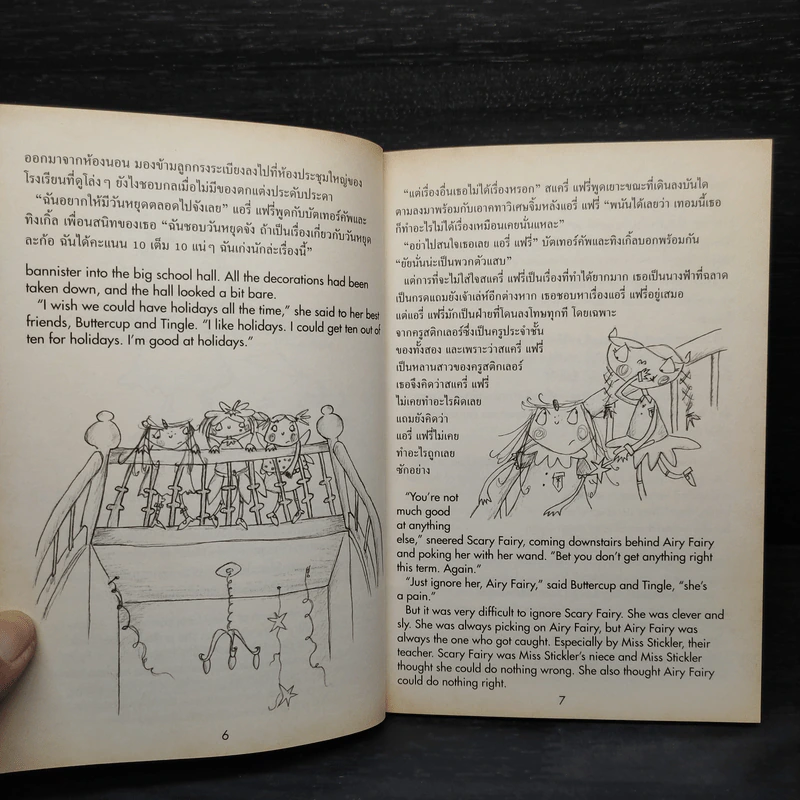 ออกมาจากห้องนอน มองข้ามลูกกรงระเบียงลงไปที่ห้องประชุมใหญ่ของ
โรงเรียนที่ดูโล่งๆ ยังไงชอบกลเมื่อไม่มีของตกแต่งประดับประดา
“ฉันอยากให้มีวันหยุดตลอดไปจังเลย” แอรี่ แฟรี่พูดกับบัตเทอร์คัพและ
ทิงเกิ้ล เพื่อนสนิทของเธอ “ฉันชอบวันหยุดจัง ถ้าเป็นเรื่องเกี่ยวกับวันหยุด
ละก้อ ฉันได้คะแนน 10 เต็ม 10 แน่ๆ ฉันเก่งนักล่ะเรื่องนี้”
bannister into the big school hall. All the decorations had been
taken down, and the hall looked a bit bare.
“I wish we could have holidays all the time,” she said to her best
friends, Buttercup and Tingle. “I like holidays. I could get ten out of
ten for holidays. I’m good at holidays.”
6
“แต่เรื่องอื่นเธอไม่ได้เรื่องหรอก” สแครี่ แฟรี่พูดเยาะขณะที่เดินลงบันได
ตามลงมาพร้อมกับเอาคทาวิเศษจิ้มหลังแอรี่ แฟรี่ “พนันได้เลยว่า เทอมนี้เธอ
ก็ทำอะไรไม่ได้เรื่องเหมือนเคยนั่นแหละ”
“อย่าไปสนใจเธอเลย แอรี่ แฟรี่” บัตเทอร์คัพและทิงเกิ้ลบอกพร้อมกัน
“ยัยนั่นน่ะเป็นพวกตัวแสบ”
แต่การที่จะไม่ใส่ใจสแครี่ แฟรี่เป็นเรื่องที่ทำได้ยากมาก เธอเป็นนางฟ้าที่ฉลาด
เป็นกรดแถมยังเจ้าเล่ห์อีกต่างหาก เธอชอบหาเรื่องแอรี่ แฟรี่อยู่เสมอ
แต่แอรี่ แฟรี่มักเป็นฝ่ายที่โดนลงโทษทุกที โดยเฉพาะ
จากครูสติกเลอร์ซึ่งเป็นครูประจำชั้น
ของทั้งสอง และเพราะว่าสแครี่ แฟรี่
เป็นหลานสาวของครูสติกเลอร์
เธอจึงคิดว่าสแครี่ แฟรี่
ไม่เคยทำอะไรผิดเลย
แถมยังคิดว่า
แอรี่ แฟรี่ไม่เคย
ทำอะไรถูกเลย
ซักอย่าง
“You’re not
much good
at anything
else,” sneered Scary Fairy, coming downstairs behind Airy Fairy
and poking her with her wand. “Bet you don’t get anything right
this term. Again.”
“Just ignore her, Airy Fairy,” said Buttercup and Tingle, “she’s
a pain.”
But it was very difficult to ignore Scary Fairy. She was clever and
sly. She was always picking on Airy Fairy, but Airy Fairy was
always the one who got caught. Especially by Miss Stickler, their
teacher. Scary Fairy was Miss Stickler’s niece and Miss Stickler
thought she could do nothing wrong. She also thought Airy Fairy
could do nothing right.
7